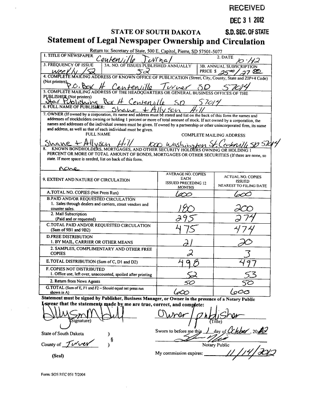 RECEIVED
DEC 31 2012
S.D. SEC. OF STATE
STATE OF SOUTH DAKOTA
Statement of Legal Newspaper Ownership and Circulation
Return to: Secretary of State, 500 E. Capitol, Pierre, SD 57501-5077
1. TITLE OF NEWSPAPER
Centerville Journal
2. DATE
10/12
3. FREQUENCY OF ISSUE
weekly / 52
3A. NO. OF ISSUES PUBLISHED ANNUALLY
52
3B. ANNUAL SUBSCRIPTION
PRICE $
4. COMPLETE MAILING ADDRESS OF KNOWN OFFICE OF PUBLICATION (Street, City, County, State, and ZIP+4 Code)
(Not printers)
P.O. Box H Centerville Turner SD 57014
5. COMPLETE MAILING ADDRESS OF THE HEADQUARTERS OF GENERAL BUSINESS OFFICES OF THE
PUBLISHER (Not printers)
Star Publishing Box H Centerville SD 57014
6. FULL NAME OF PUBLISHER:
Shane + Allyson Hill
7. OWNER (If owned by a corporation, its name and address must be stated and list on the back of this form the names and
address of stockholders owning or holding 1 percent or more of total amount of stock. If not owned by a corporation, the
names and addresses of the individual owners must be given. If owned by a partnership or other unincorporated firm, its name
and address, as well as that of each individual must be given.
FULL NAME
COMPLETE MAILING ADDRESS
Shane + Allyson Hill
Washington St Centerville SD 57014
8. KNOWN BONDHOLDERS, MORTGAGEES, AND OTHER SECURITY HOLDERS OWNING OR HOLDING 1
PERCENT OR MORE OF TOTAL AMOUNT OF BONDS, MORTGAGES OR OTHER SECURITIES (If there are none, so
state. If more space is needed, list on back of this form.
none
9. EXTENT AND NATURE OF CIRCULATION
AVERAGE NO. COPIES
EACH
ISSUED PRECEDING 12
MONTHS
ACTUAL NO. COPIES
ISSUED
NEAREST TO FILING DATE
A. TOTAL NO. COPIES (Net Press Run)
600
600
B. PAID AND/OR REQUESTED CIRCULATION
1. Sales through dealers and carriers, street vendors and
counter sales
180
200
2. Mail Subscription
(Paid and or requested)
295
274
C. TOTAL PAID AND/OR REQUESTED CIRCULATION
(Sum of 9B1 and 9B2)
475
474
D. FREE DISTRIBUTION
1. BY MAIL, CARRIER OR OTHER MEANS
21
20
2. SAMPLES, COMPLIMENTARY AND OTHER FREE
COPIES
2
3
E. TOTAL DISTRIBUTION (Sum of C, D1 and D2)
498
497
F. COPIES NOT DISTRIBUTED
1. Office use, left over, unaccounted, spoiled after printing
52
53
2. Return from News Agents
50
50
G. TOTAL (Sum of E, F1 and F2 – Should equal net press run
shown in A)
600
600
Statement must be signed by Publisher, Business Manager, or Owner in the presence of a Notary Public
I swear that the statements made by me are true, correct, and complete:
Allyson Hill
(Signature)
Owner / publisher
(Title)
State of South Dakota )
County of Turner )
§
Sworn to before me this 1 day of October, 2012
Notary Public
(Seal)
My commission expires: 11/14/2012